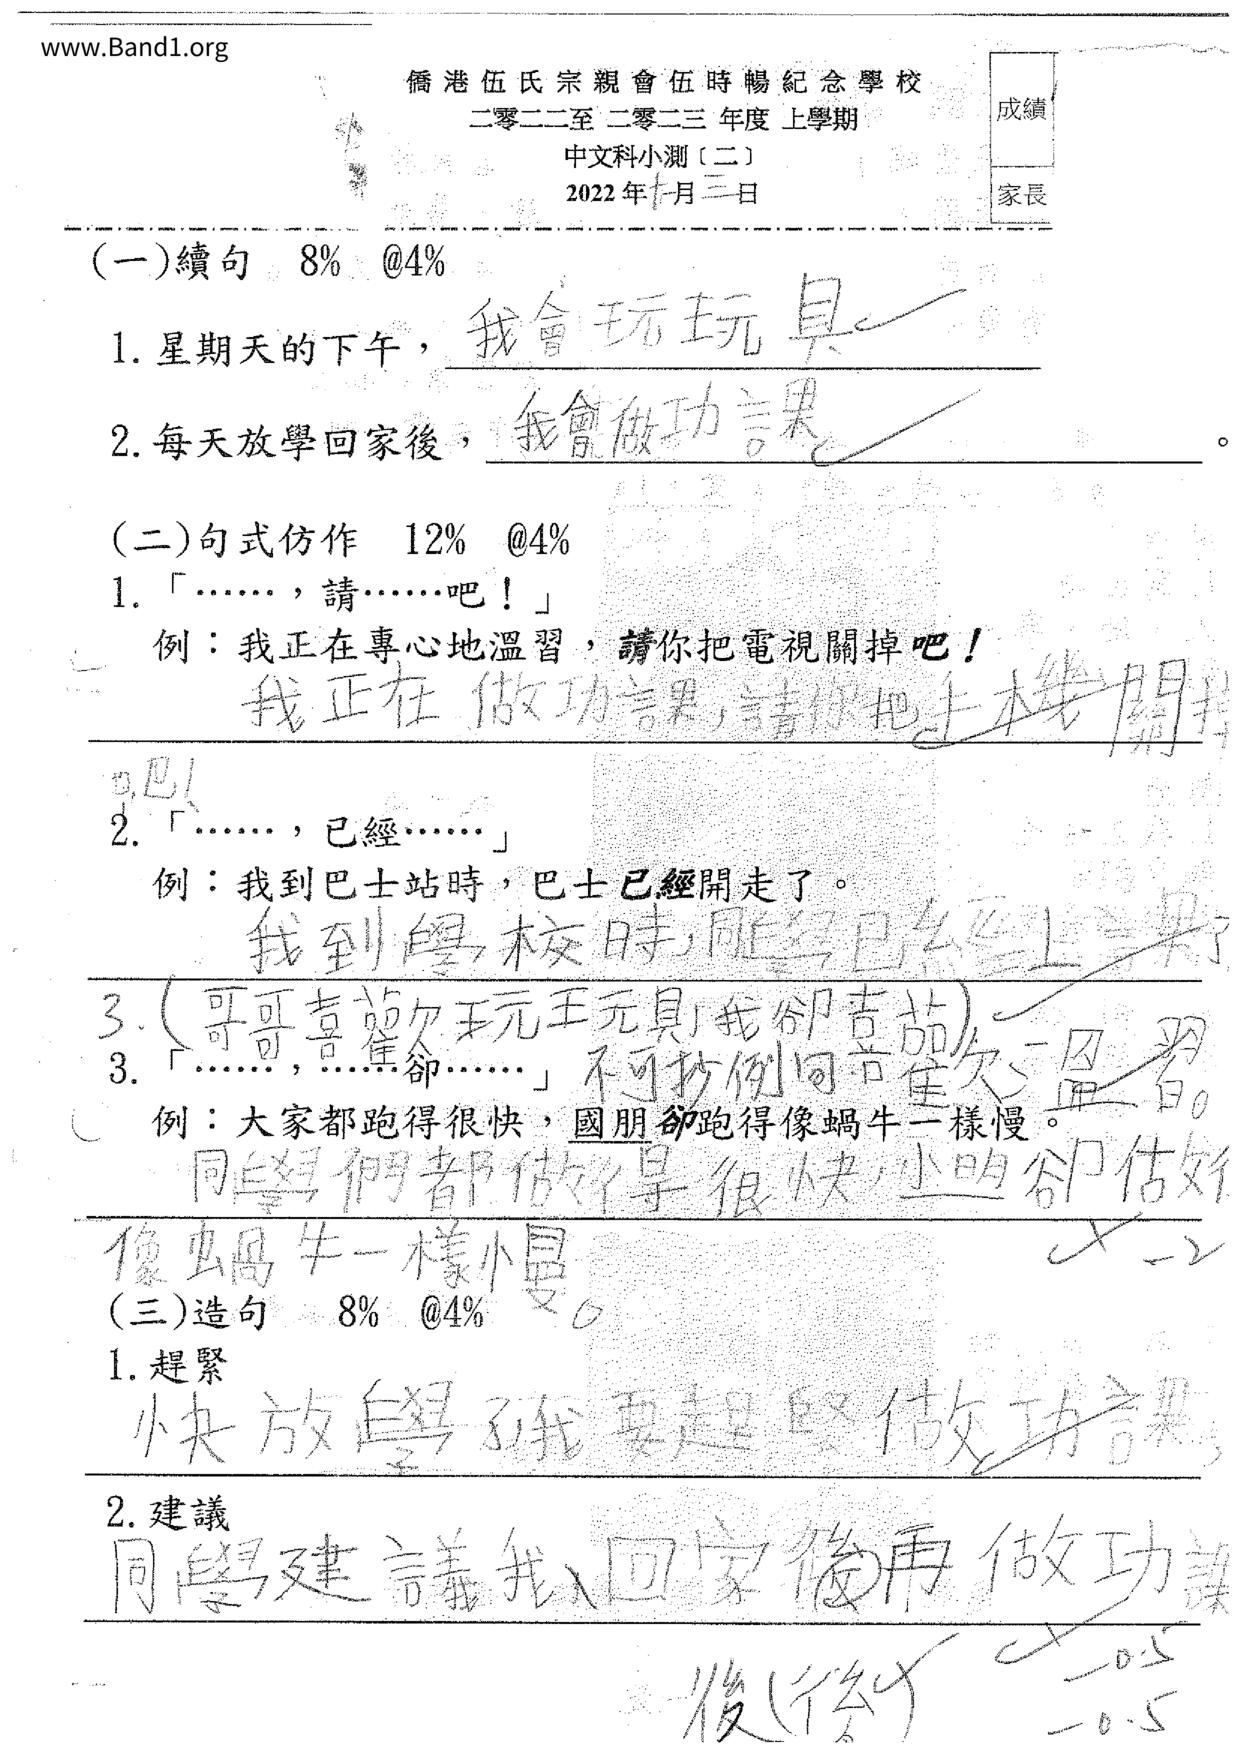 www.Band1.org
僑港伍氏宗親會伍時暢紀念學校
二零二二至二零二三年度 上學期
中文科小測〔二〕
2022年十一月三日
成績
家長
(一)續句 8% @4%
1. 星期天的下午，我會玩玩具
2. 每天放學回家後，我會做功課。
(二)句式仿作 12% @4%
1.「……，請……吧！」
例：我正在專心地溫習，請你把電視關掉吧！
我正在做功課，請你把手機關掉
吧！
2.「……，已經……」
例：我到巴士站時，巴士已經開走了。
我到學校時，同學已經上課了
3.(哥哥喜歡玩玩具，我卻喜歡溫習。
3.「……，……卻……」不可抄例句
例：大家都跑得很快，國朋卻跑得像蝸牛一樣慢。
同學們都做得很快，小明卻做得
像蝸牛一樣慢。
-2
(三)造句 8% @4%
1. 趕緊
快放學了我要趕緊做功課，
2. 建議
同學建議我、回家後再做功課
後(後)
-0.5
-0.5